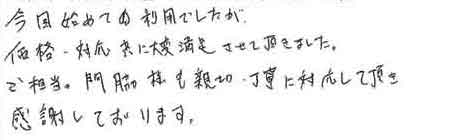 今回始めての利用でしたが、
価格・対応共に大変満足させて頂きました。
ご担当。門脇様も親切・丁寧に対応して頂き
感謝しております。